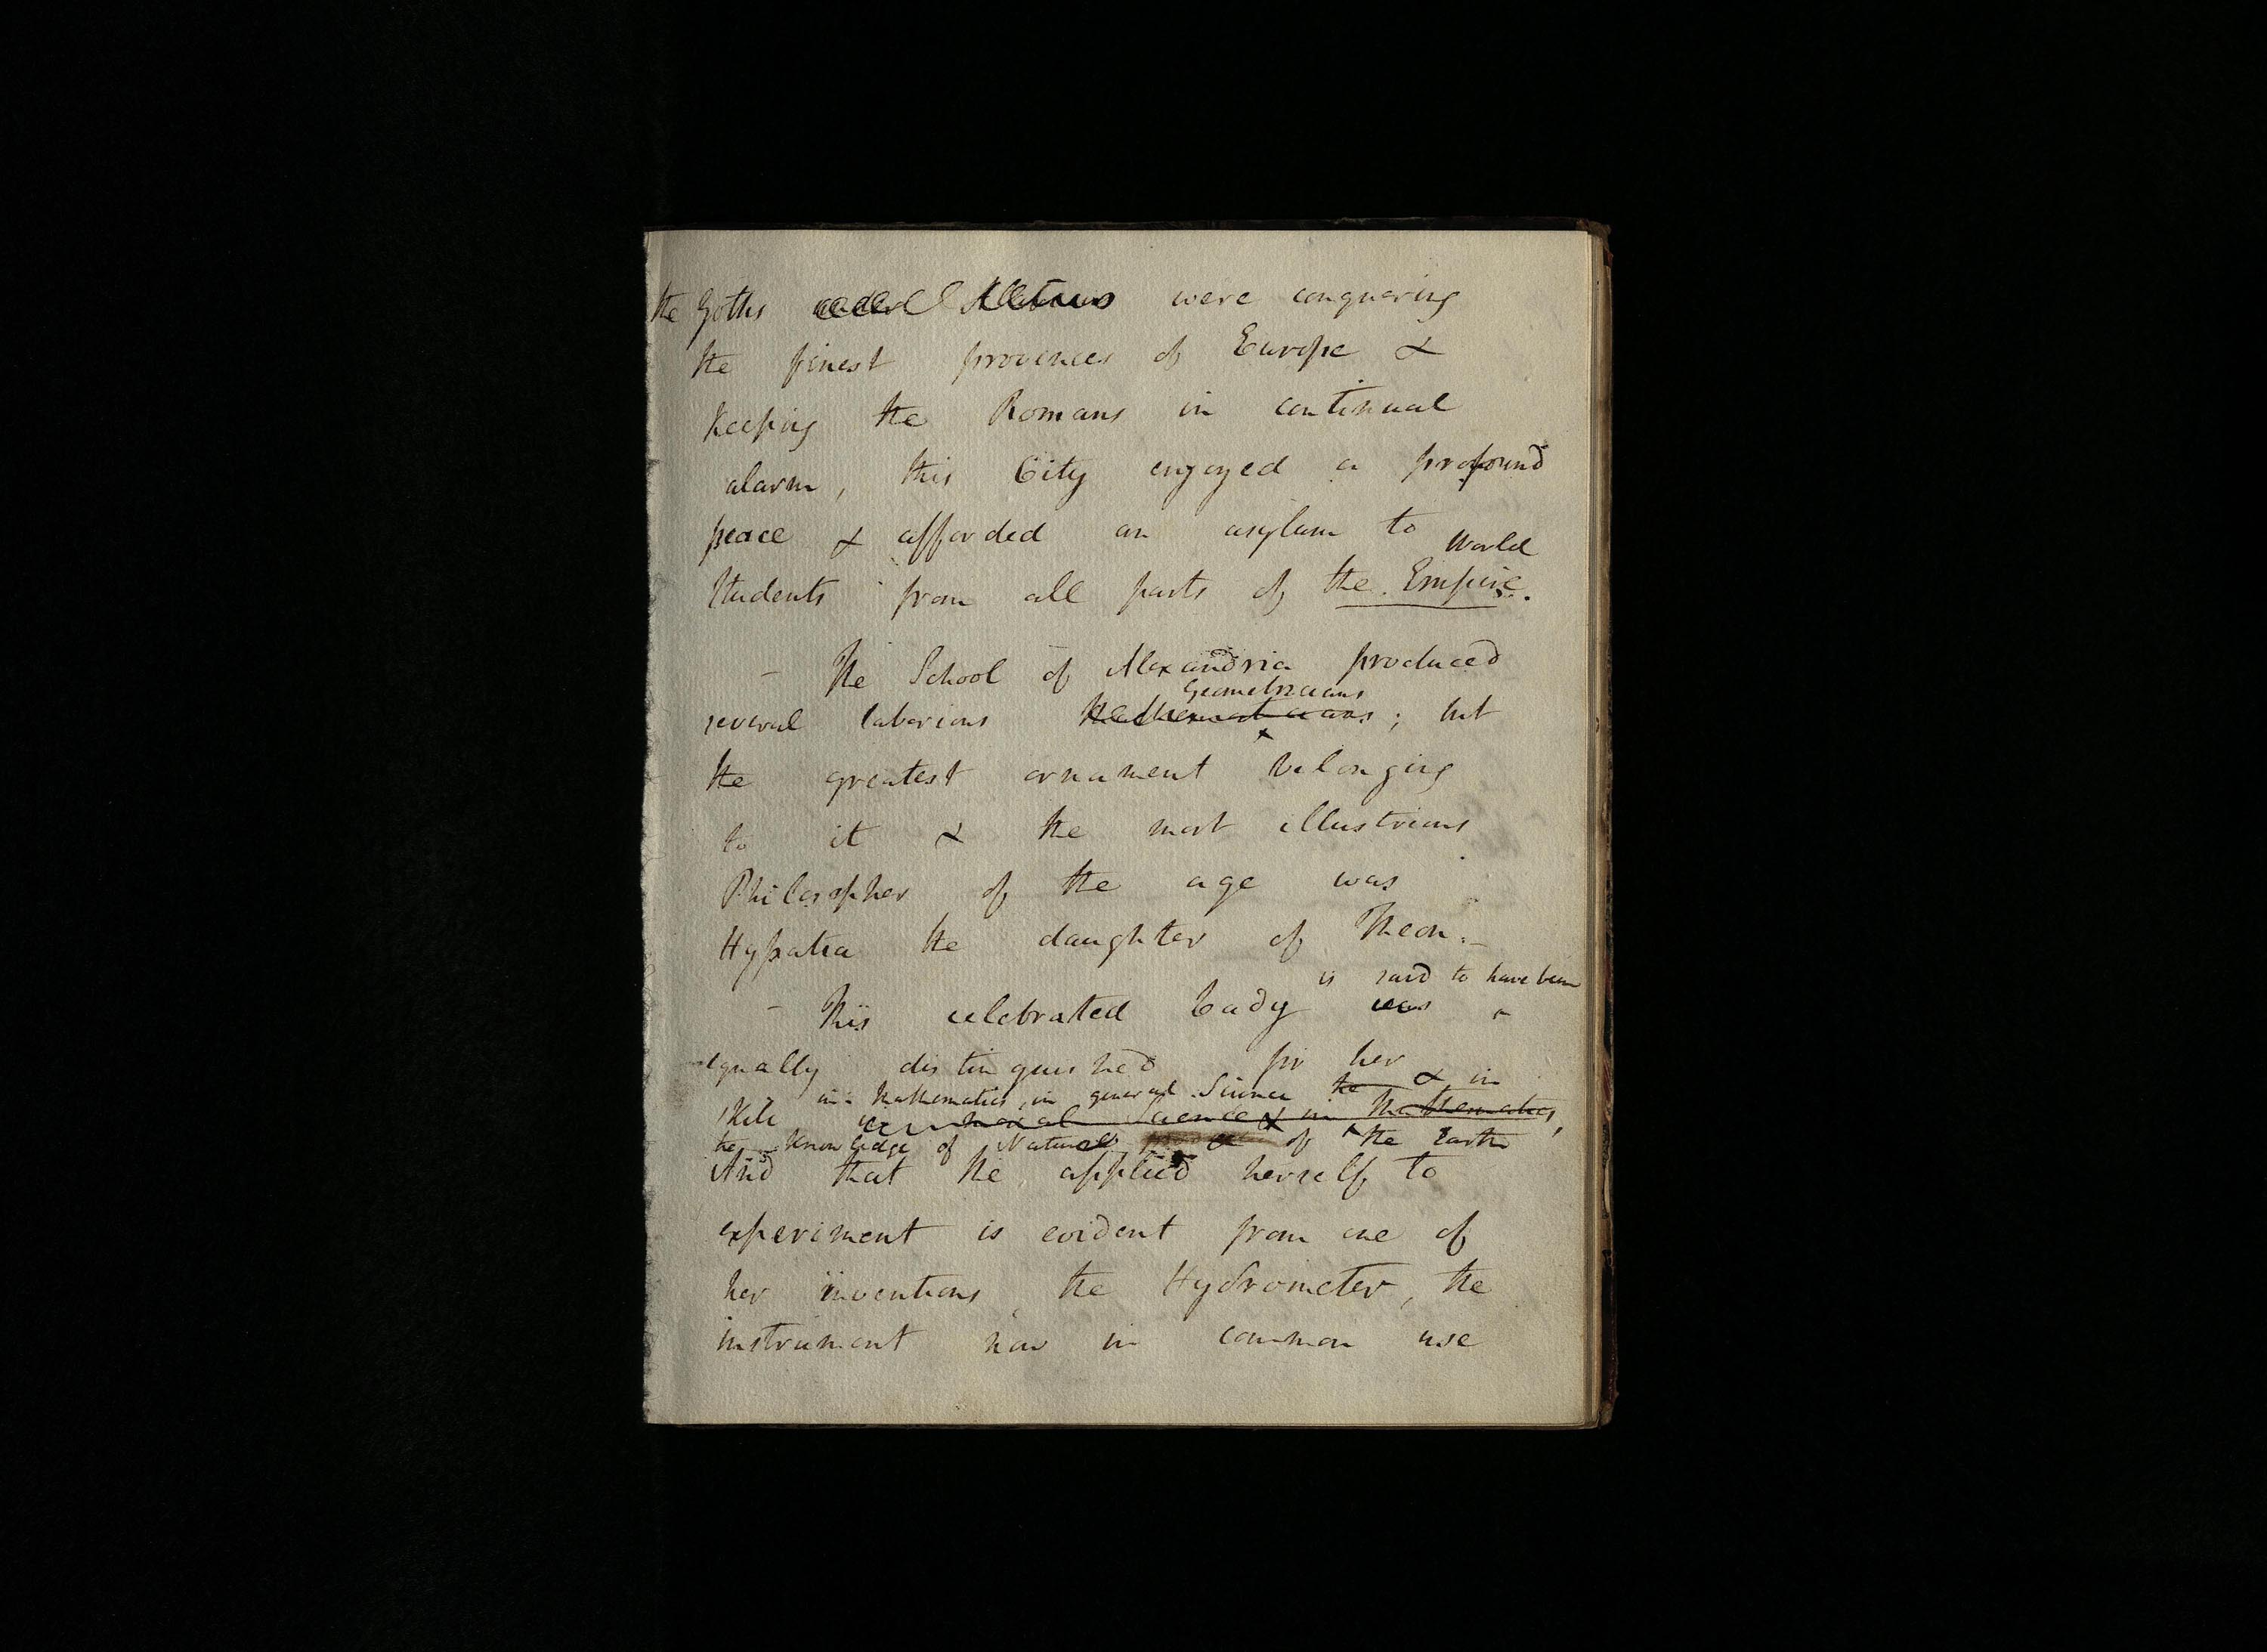 the Goths were conquering
the finest provinces of Europe &
keeping the Romans in continual
alarm, this City enjoyed a profound
peace & afforded an asylum to
World
Students from all parts of the Empire.
- The School of Alexandria produced
Geometricians
several laborious Mathematicians; but
the greatest ornament belonging
to it & the most illustrious
Philosopher of the age was
Hypatia the daughter of Theon.-
is said to have been
- This celebrated Lady was
equally distinguished for her
in Mathematics, in general Science the & in
skill in general Science & in Mathematics,
the knowledge of Nature of the Earth
And that she applied herself to
experiment is evident from one of
her inventions, the Hydrometer, the
instrument now in common use